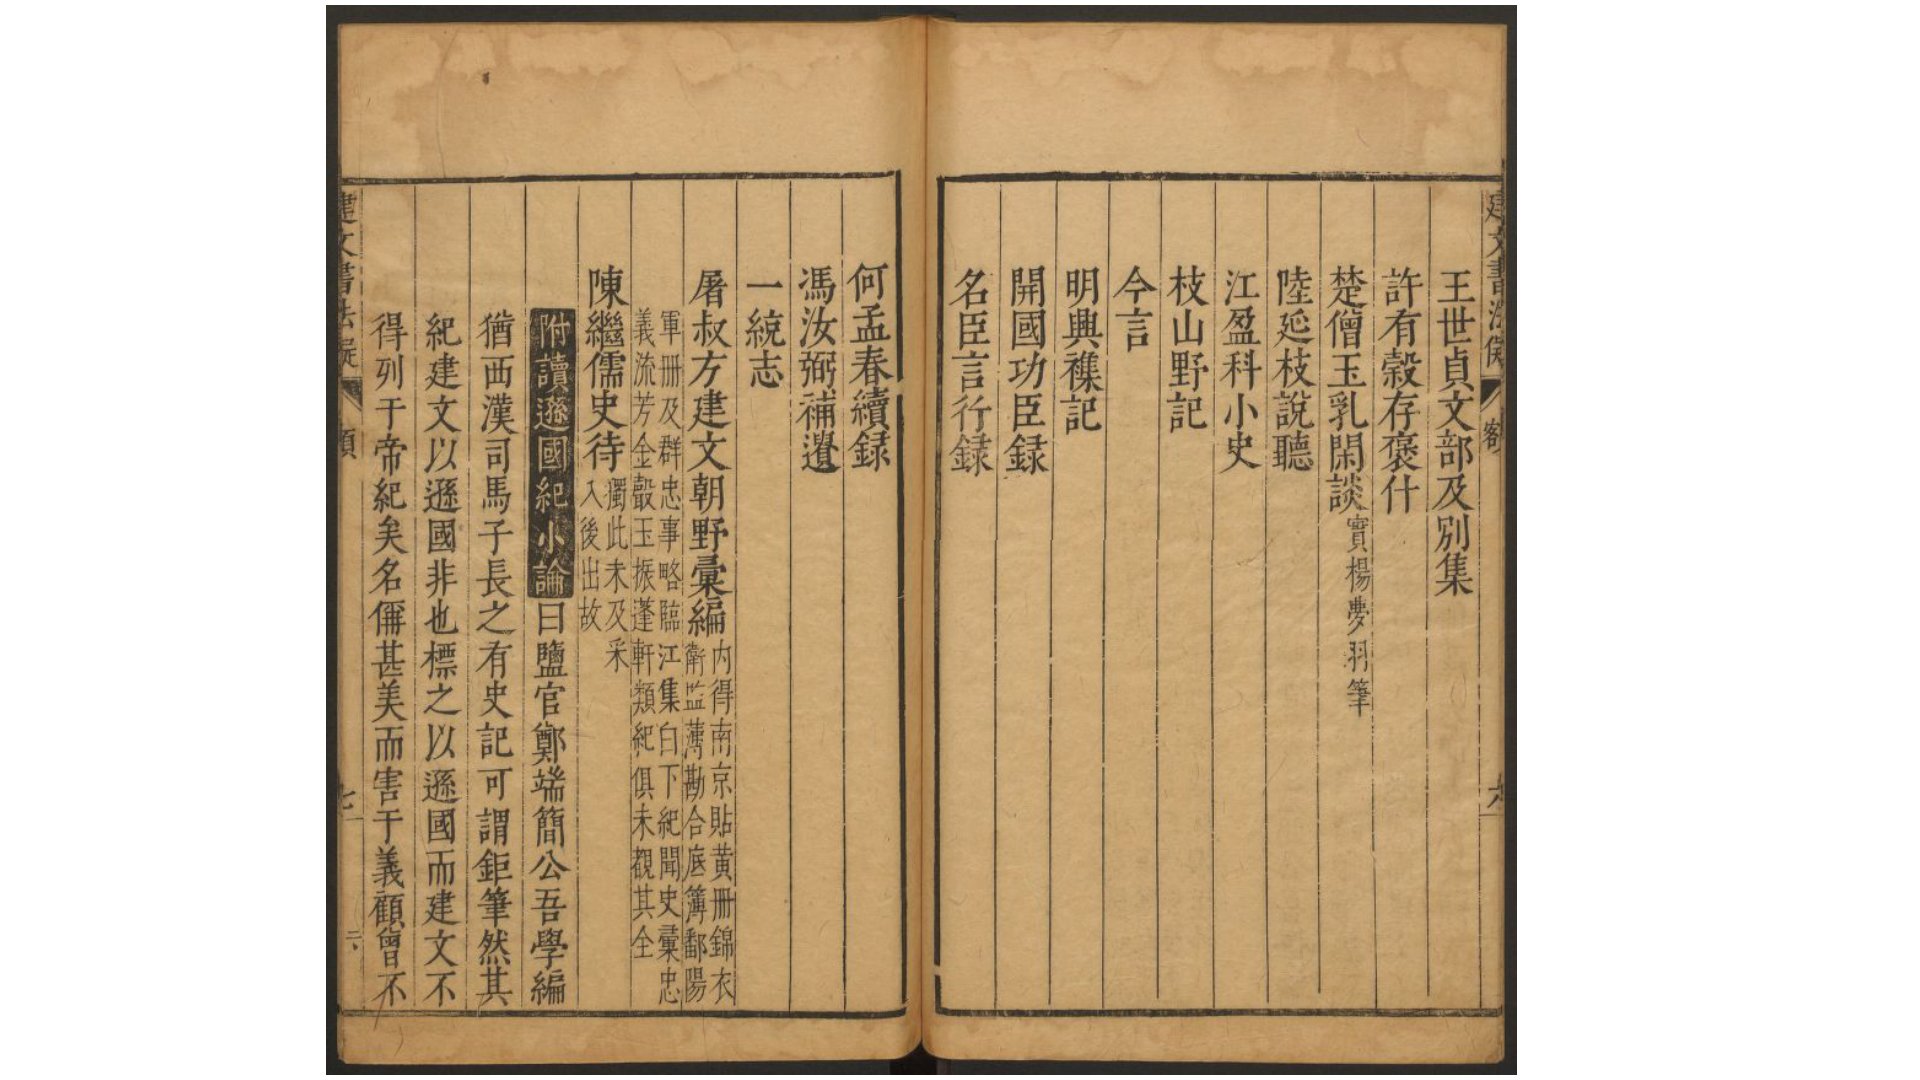 王世貞文部及別集
許有穀存褒什
楚僧玉乳閑談實楊夢羽筆
陸延枝說聽
江盈科小史
枝山野記
今言
明興襍記
開國功臣録
名臣言行録
何孟春續録
馮汝弼補遺
一統志
屠叔方建文朝野彙編内得南京貼黄冊錦衣
衛監薄勘合底簿鄱陽
軍冊及群忠事略臨江集白下紀聞史彙忠
義流芳金聲玉振蓬軒類紀俱未覩其全
陳繼儒史待獨此未及采
入後出故
附讀遜國紀小論曰鹽官鄭端簡公吾學編
猶西漢司馬子長之有史記可謂鉅筆然其
紀建文以遜國非也標之以遜國而建文不
得列于帝紀矣名偁甚美而害于義顧曾不
建文書法儗
六
建文書法儗
七